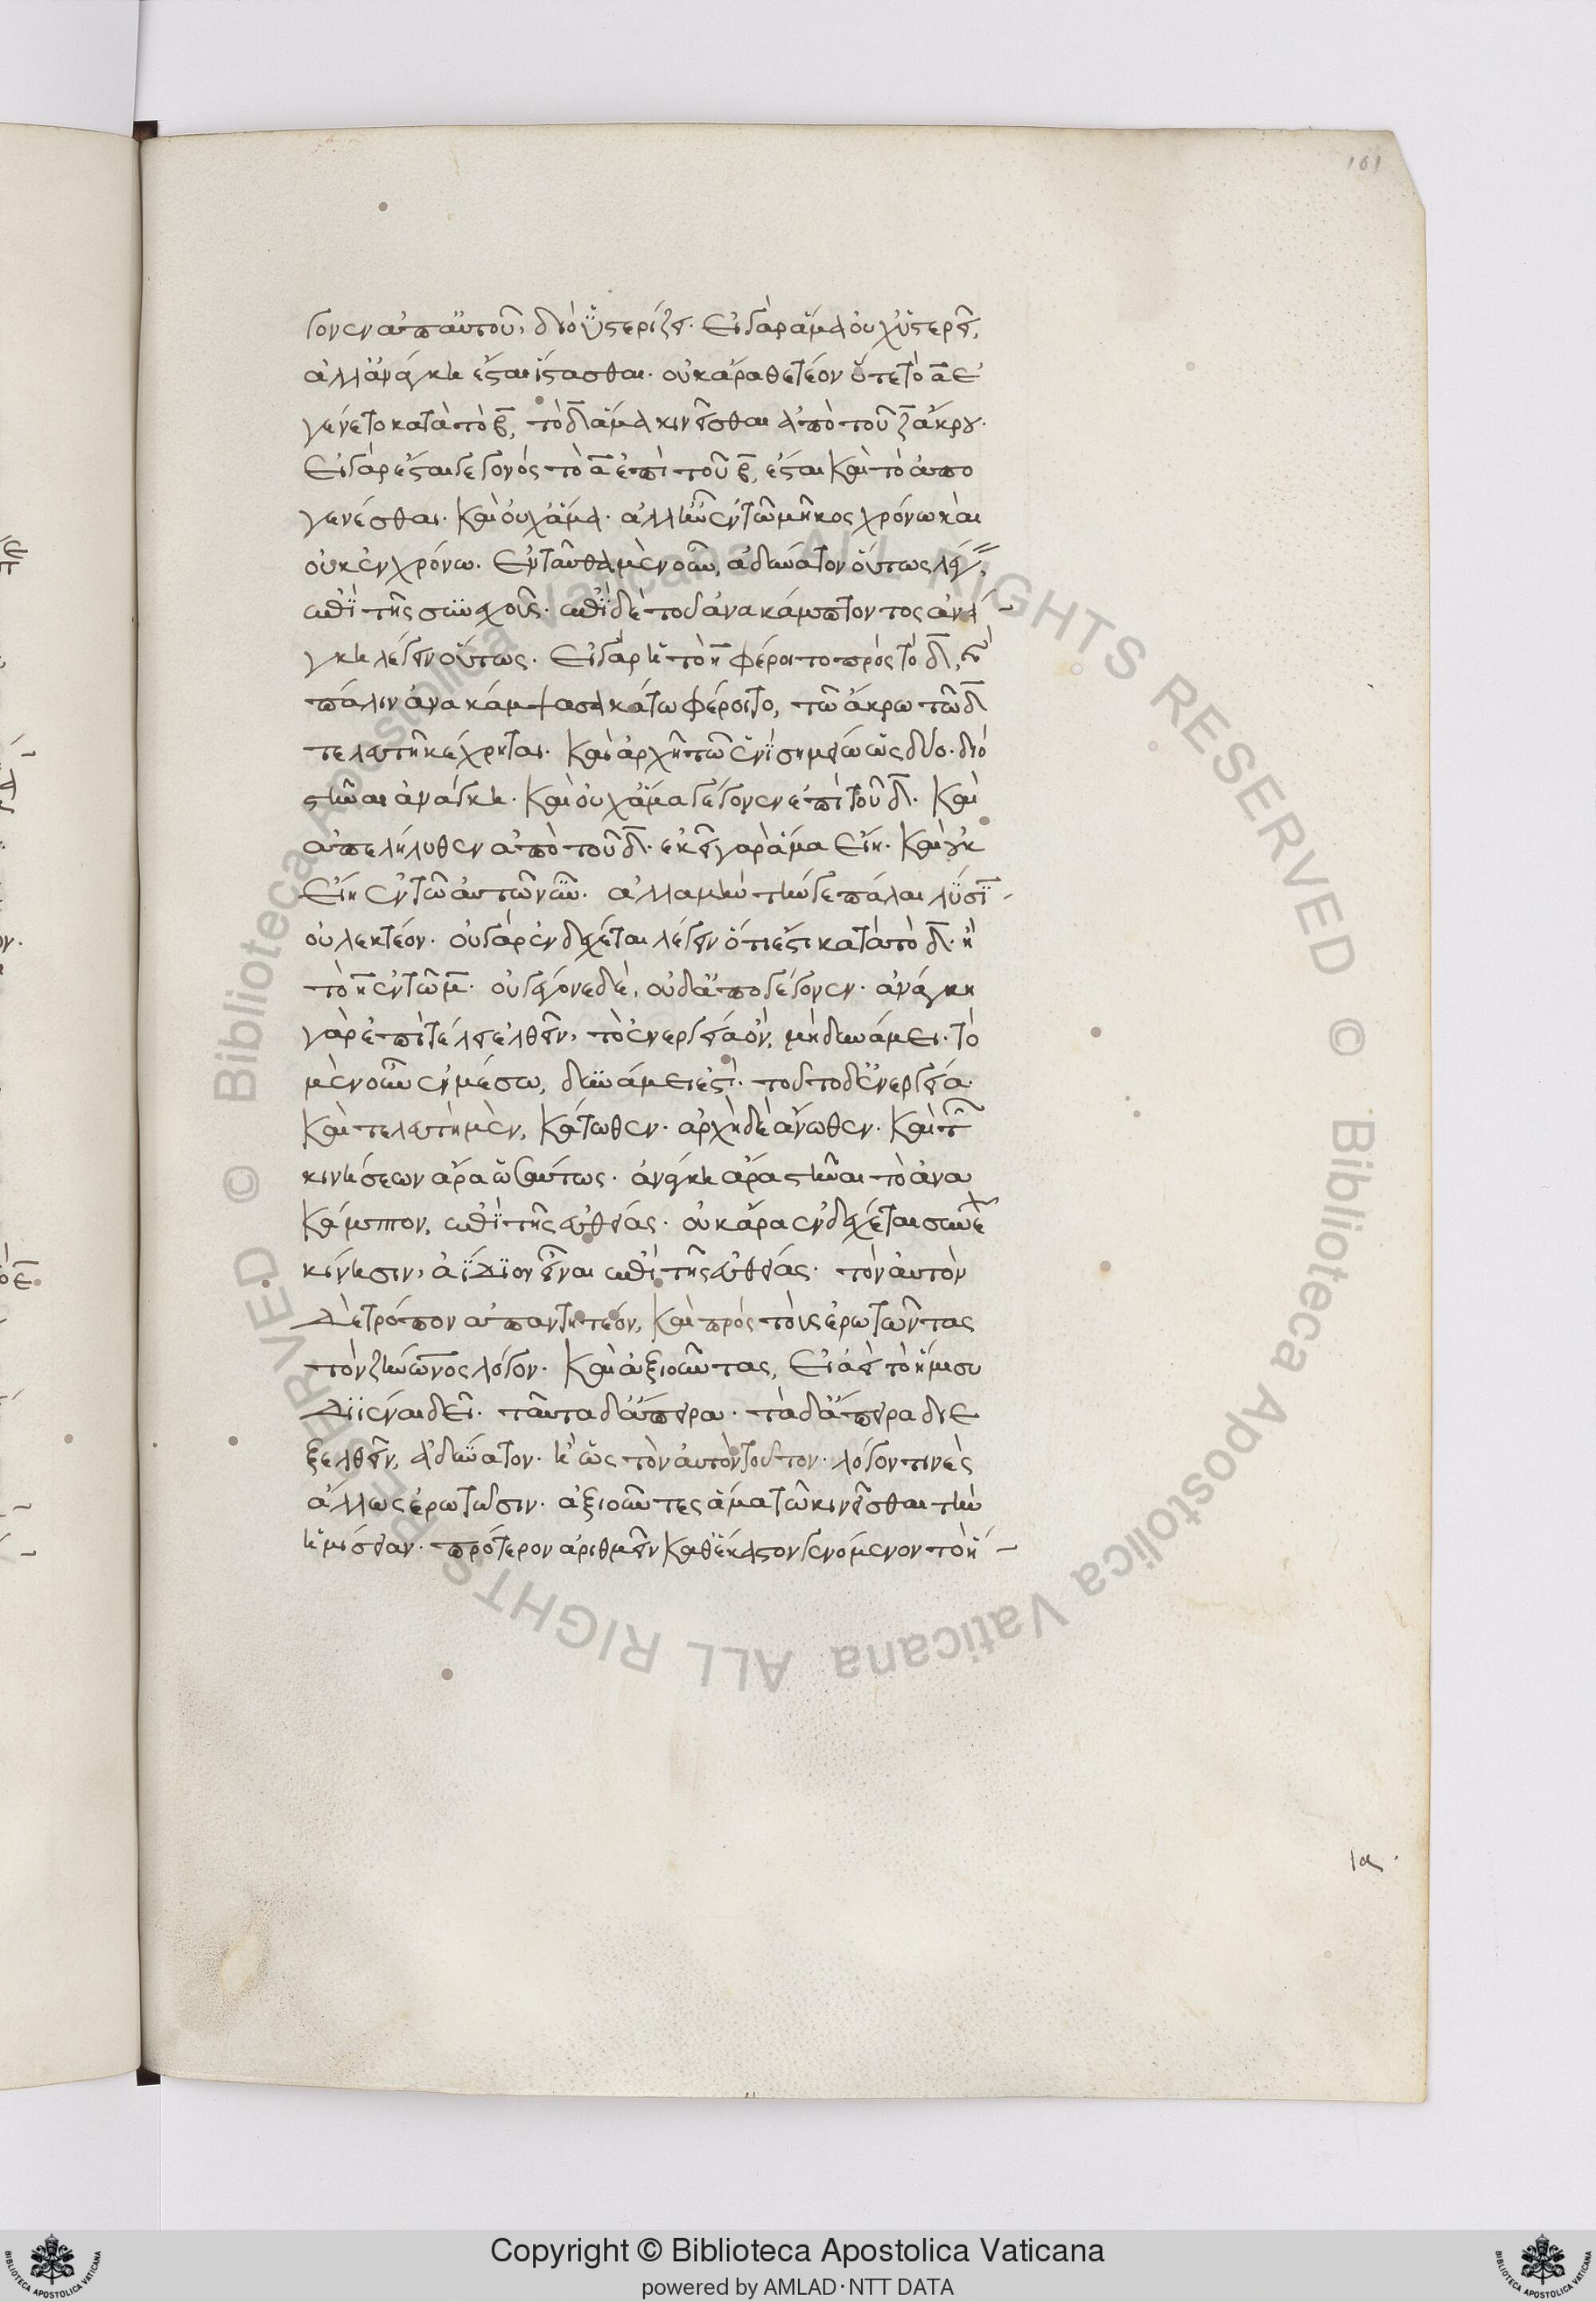 161
γονεν ἀπ' αὐτοῦ, διὸ ὑστερίζει. Εἰ γὰρ ἅμα οὐχ ὑστερεῖ,
ἀλλ' ἀνάγκη ἔσται ἵστασθαι. οὐκ ἄρα θετέον ὅτε τὸ α ἐ
γένετο κατὰ τὸ β, τὸ δ ἅμα κινεῖσθαι ἀπὸ τοῦ ζ ἄκρου.
Εἰ γὰρ ἔσται γεγονὸς τὸ α ἐπὶ τοῦ β, ἔσται καὶ τὸ ἀπο
γενέσθαι. καὶ οὐχ ἅμα. ἀλλ' ἦν ἐν τῶ μῆκος χρόνω και
οὐκ ἐν χρόνω. Ἐνταῦθα μὲν οὖν, ἀδύνατον οὕτως λέγ
ἐπὶ τῆς συνεχοῦς. ἐπὶ δὲ τοῦ ἀνακάμπτοντος ἀνά
γκη λέγειν οὕτως. Εἰ γὰρ ἡ τὸ η φέροιτο πρὸς τὸ δ, καὶ
πάλιν ἀνακάμψασα κάτω φέροιτο, τῶ ἄκρω τῶ δ
τελευτῆ κέχρηται. καὶ ἀρχῆ τῶ ἑνὶ σημείω ὡς δύο. διὸ
στῆναι ἀνάγκη. καὶ οὐχ ἅμα γέγονεν ἐπὶ τοῦ δ. καὶ
ἀπελήλυθεν ἀπὸ τοῦ δ. ἐκεῖ γὰρ ἅμα εἴη. καὶ οὐκ
εἴη ἐν τῶ αὐτῶ νῦν. ἀλλὰ μὴν τήν γε πάλαι λύσι
οὐ λεκτέον. οὐ γὰρ ἐνδέχεται λέγειν ὅτι ἐστι κατὰ τὸ δ. ἢ
τὸ η ἐν τῶ μ. οὐ γέγονε δὲ, οὐδ' ἀπογέγονεν. ἀνάγκη
γὰρ ἐπὶ τέλει ἐλθεῖν, τὸ ἐνεργείᾳ ὂν, μὴ δυνάμει. τὸ
μὲν οὖν ἐν μέσω, δυνάμει ἐστὶ. τοῦτο δ' ἐνεργείᾳ.
καὶ τελευτὴ μὲν, κάτωθεν. ἀρχὴ δὲ ἄνωθεν. καὶ τῶν
κινήσεων ἄρα ὡσαύτως. ἀνάγκη ἄρα στῆναι τὸ ἀνα
κάμπτον, ἐπὶ τῆς εὐθείας. οὐκ ἄρα ἐνδέχεται συνεχῆ
κίνησιν, ἀΐδιον εἶναι ἐπὶ τῆς εὐθείας. τὸν αὐτὸν
δὲ τρόπον ἀπαντητέον, καὶ πρὸς τοὺς ἐρωτῶντας
τὸν ζήνωνος λόγον. καὶ ἀξιοῦντας, Εἰ ἀεὶ τὸ ἥμισυ
διϊέναι δεῖ. ταῦτα δ' ἄπειρα. τὰ δ' ἄπειρα διε
ξελθεῖν, ἀδύνατον. ἢ ὡς τὸν αὐτὸν τοῦτον. λόγον τινὲς
ἄλλως ἐρωτῶσιν. ἀξιοῦντες ἅμα τῶ κινεῖσθαι τὴν
ἡμίσειαν. πρότερον ἀριθμεῖν καθ' ἕκαστον γενόμενον τὸ ἥ
ια
Copyright © Biblioteca Apostolica Vaticana
powered by AMLAD · NTT DATA
© Biblioteca Apostolica Vaticana ALL RIGHTS RESERVED © Biblioteca Apostolica Vaticana ALL RIGHTS RESERVED